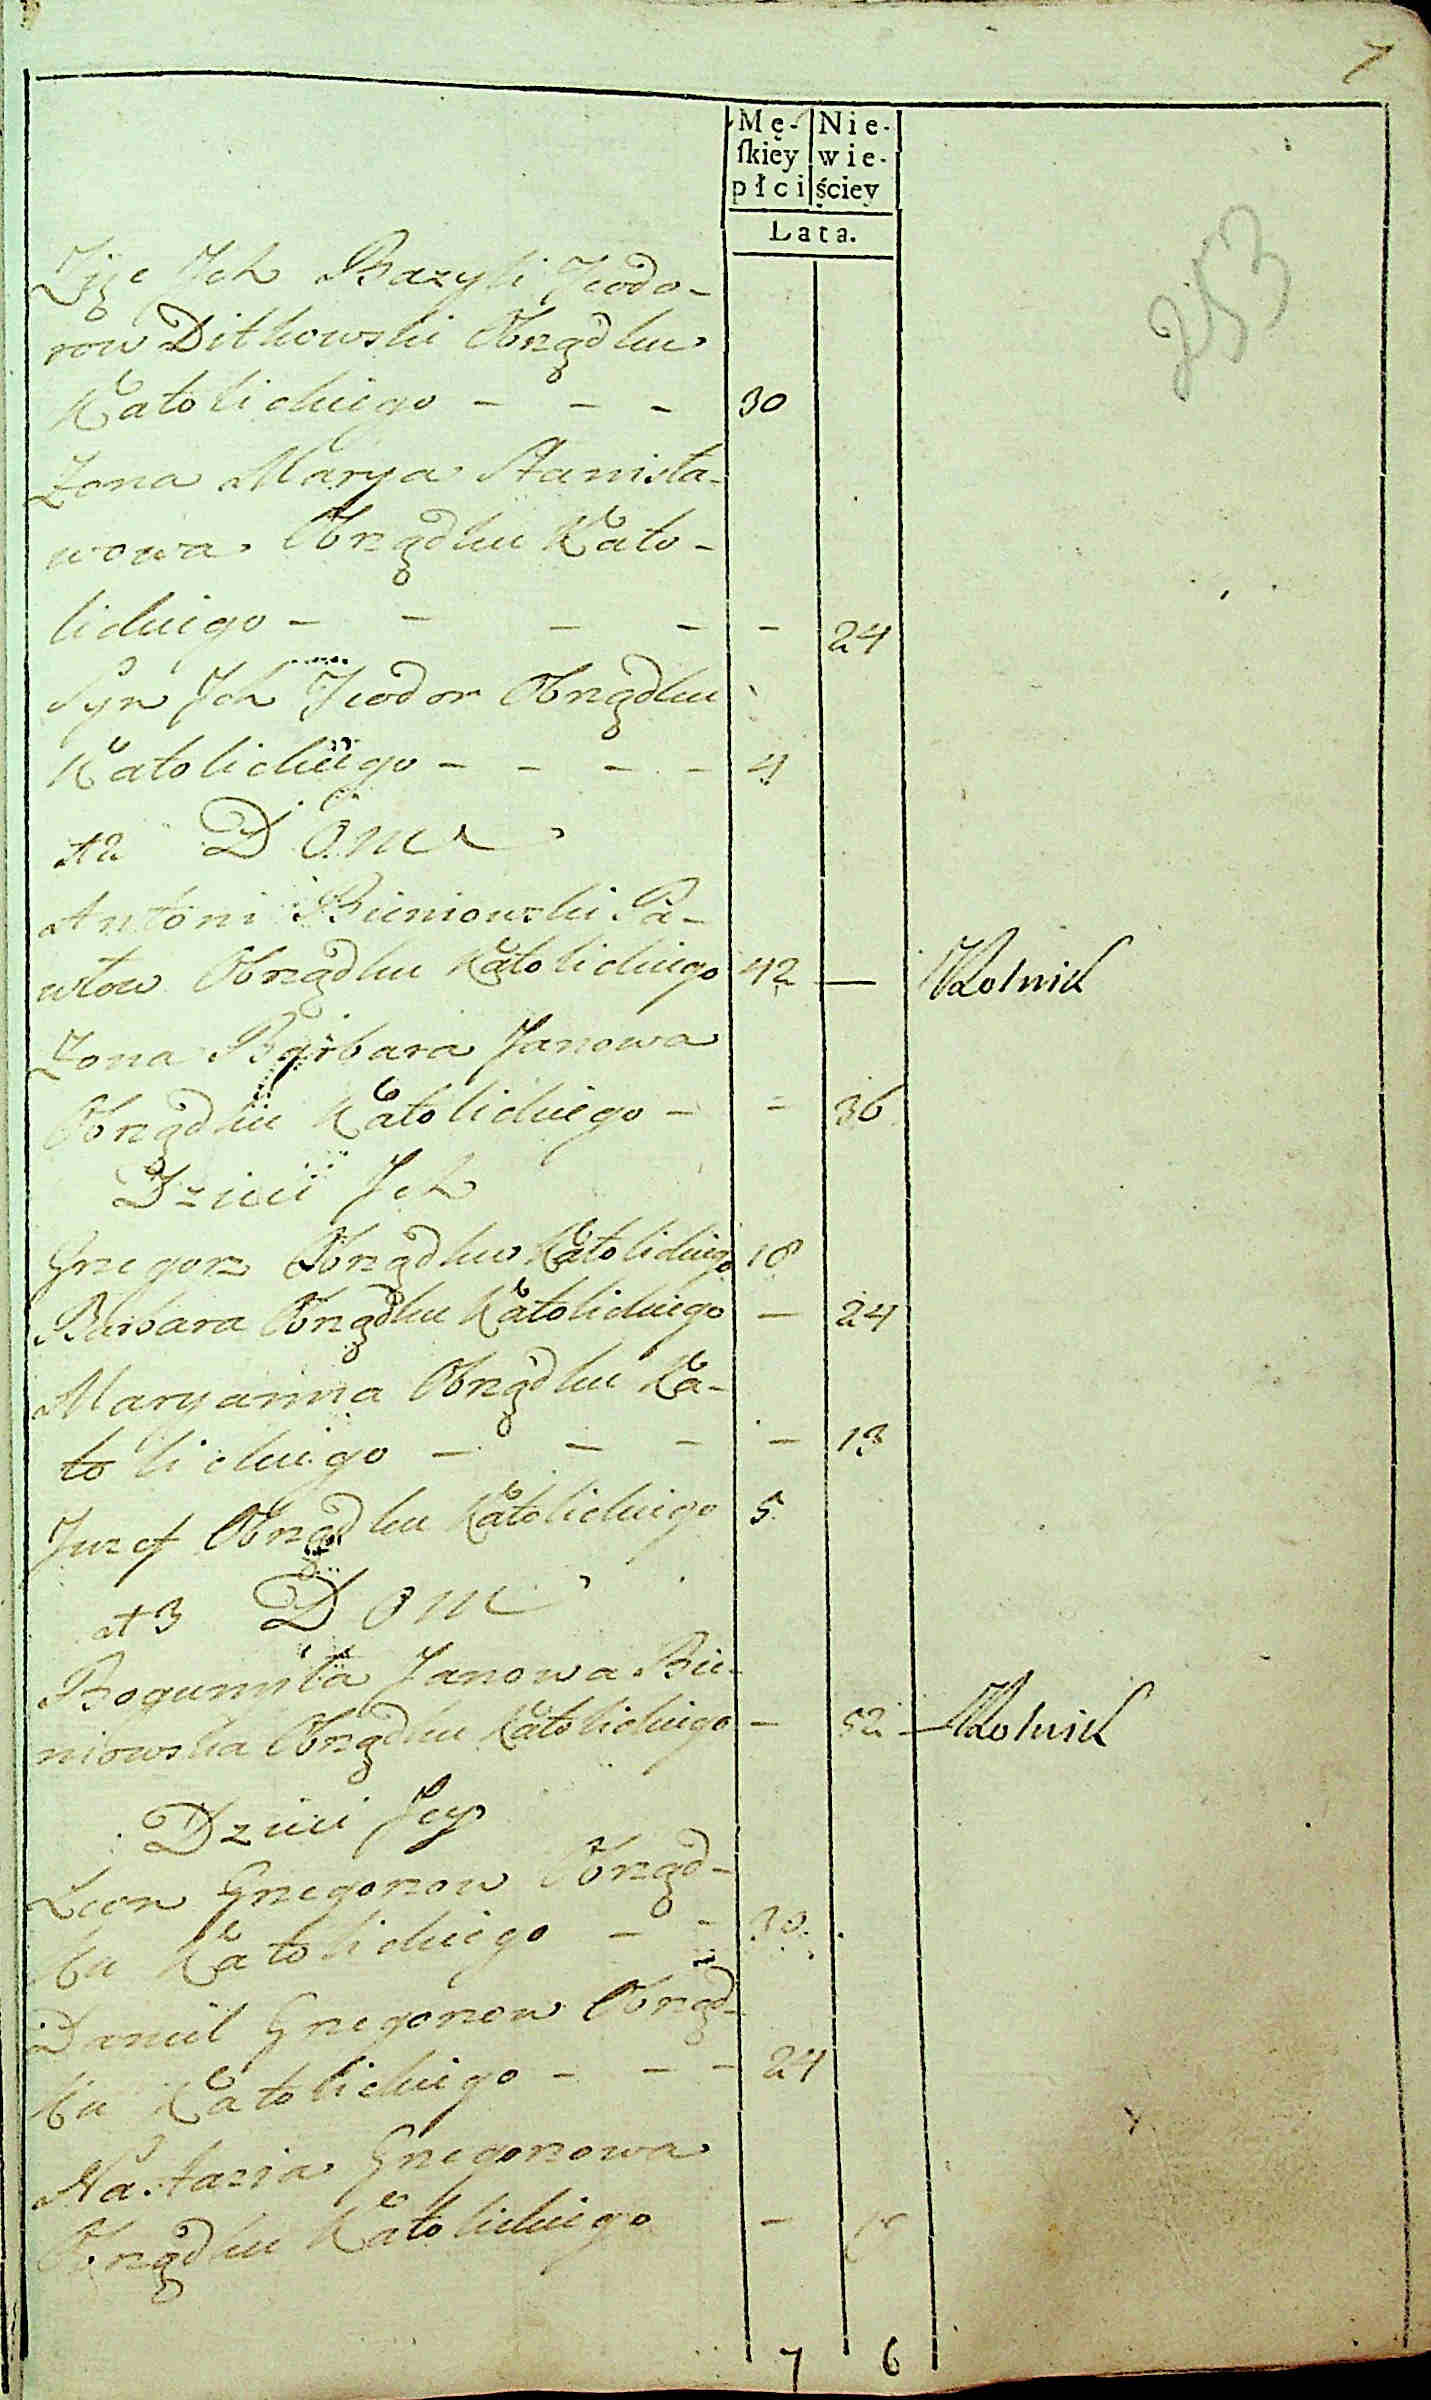 7
Mę- Nie-
ſkiey wie-
płci ściey
Lata.
253
Zięc Ich Bazyli Teodo-
row Ditkowski Obrządku
Katolickiego - - - 30
Zona Marya Stanisła-
wowa Obrządku Kato-
lickiego - - - - - 24
Syn Ich Teodor Obrządku
Katolickiego - - - - 4
12 Dom
Antoni Bieniowski Pa-
włow Obrządku Katolickiego 42 — Rolnik
Zona Barbara Janowa
Obrządku Katolickiego - - 36
Dzieci Ich
Gregorz Obrządku Katolickiego 18
Barbara Obrządku Katolickiego - 24
Maryanna Obrządku Ka-
tolickiego - - - - 13
Juzef Obrządku Katolickiego 5
13 Dom
Bogumyła Janowa Bie-
niowska Obrządku Katolickiego - 52 - Rolnik
Dzieci Jey
Leon Gregorzow Obrząd-
ku Katolickiego - - 30
Daniel Gregorzow Obrząd-
ku Katolickiego - - - 24
Nastazia Gregorzowa
Obrządku Katolickiego -
7 6